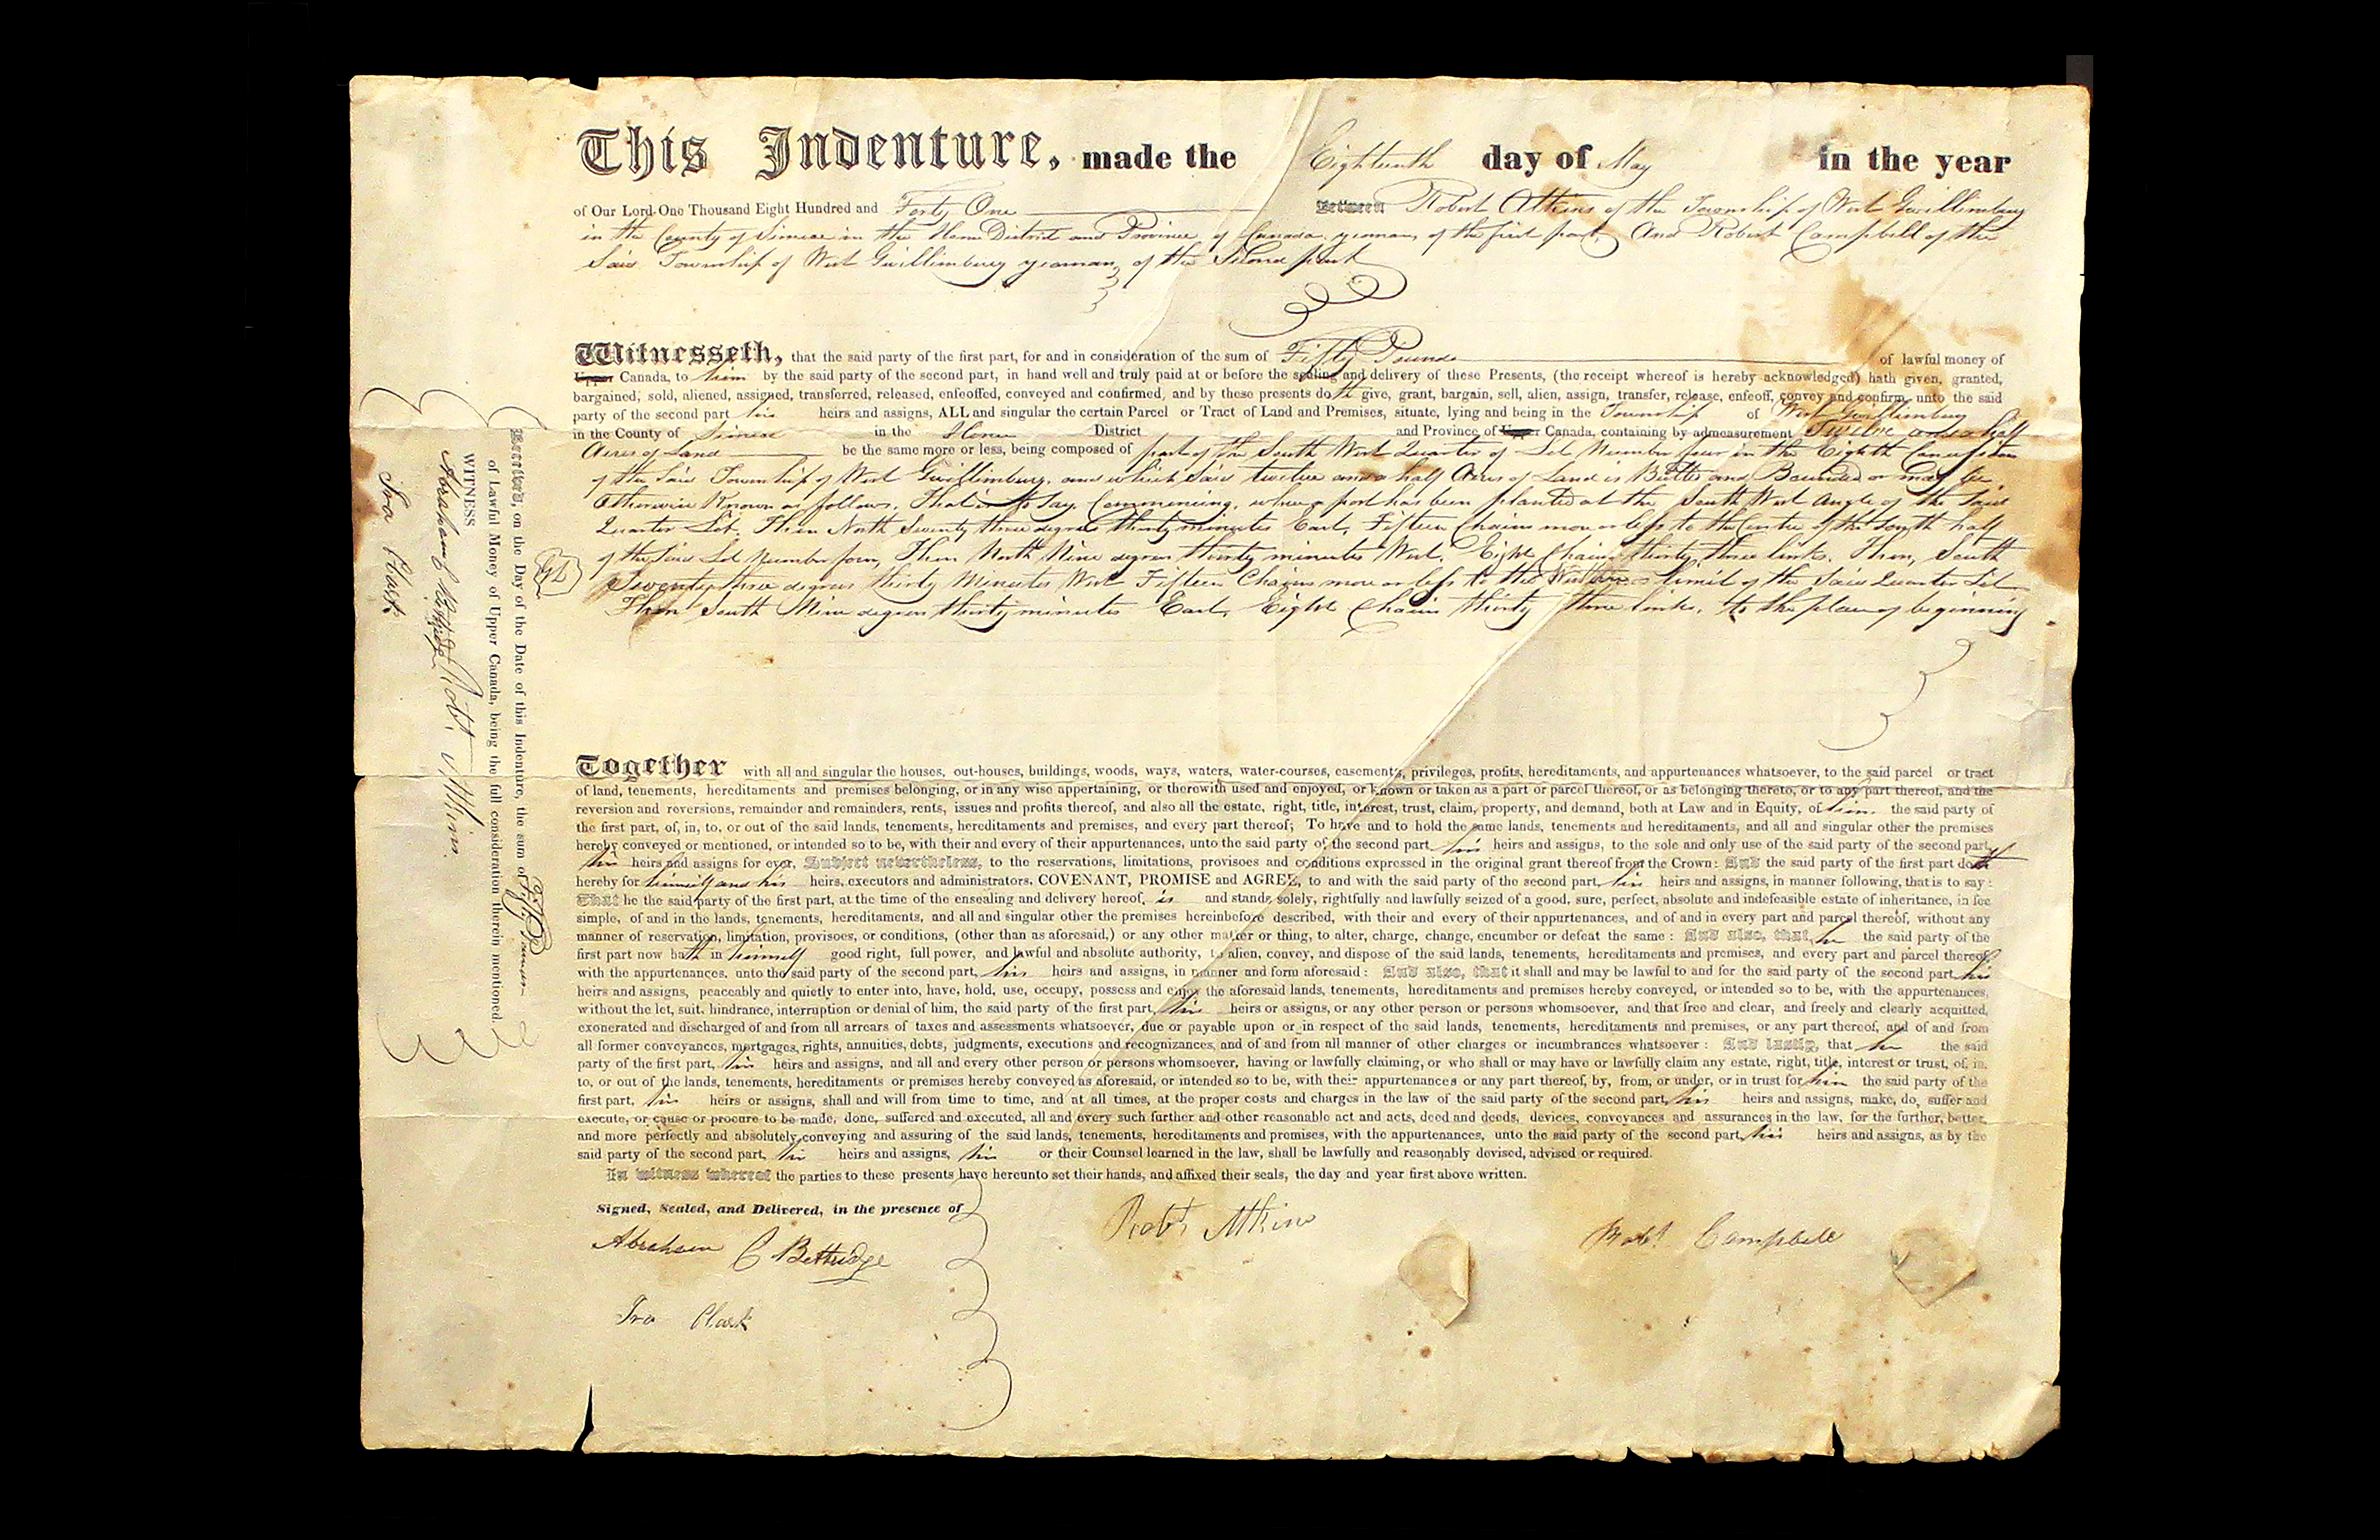 This Indenture, made the Eighteenth day of May in the year
of Our Lord One Thousand Eight Hundred and Forty One Between Robert Atkins of the Township of West Gwillimbury
in the County of Simcoe in the Home District and Province of Canada yeoman, of the first part, And Robert Campbell of the
Said Township of West Gwillimbury yeoman, of the Second part
Witnesseth, that the said party of the first part, for and in consideration of the sum of Fifty Pounds of lawful money of
Upper Canada, to him by the said party of the second part, in hand well and truly paid at or before the sealing and delivery of these Presents, (the receipt whereof is hereby acknowledged) hath given, granted,
bargained, sold, aliened, assigned, transferred, released, enfeoffed, conveyed and confirmed, and by these presents doth give, grant, bargain, sell, alien, assign, transfer, release, enfeoff, convey and confirm, unto the said
party of the second part his heirs and assigns, ALL and singular the certain Parcel or Tract of Land and Premises, situate, lying and being in the Township of West Gwillimbury
in the County of Simcoe in the Home District and Province of Upper Canada, containing by admeasurement Twelve and a half
Acres of Land be the same more or less, being composed of part of the South West Quarter of Lot Number four in the Eighth Concession
of the Said Township of West Gwillimbury, and which Said twelve and a half Acres of Land is Butted and Bounded or may be
Otherwise Known as follows, That is to Say, Commencing, where a post has been planted at the South West Angle of the Said
Quarter Lot. Then North Seventy three degrees thirty minutes East, Fifteen Chains more or less to the Centre of the South half
of the Said Lot Number four, Then North Nine degrees thirty minutes West, Eight Chains thirty three links. Then, South
Seventy three degrees thirty Minutes West Fifteen Chains more or less to the Western limit of the Said Quarter Lot
Then South Nine degrees thirty minutes East, Eight Chains thirty three links, to the place of beginning
Together with all and singular the houses, out-houses, buildings, woods, ways, waters, water-courses, easements, privileges, profits, hereditaments, and appurtenances whatsoever, to the said parcel or tract
of land, tenements, hereditaments and premises belonging, or in any wise appertaining, or therewith used and enjoyed, or known or taken as a part or parcel thereof, or as belonging thereto, or to any part thereof, and the
reversion and reversions, remainder and remainders, rents, issues and profits thereof, and also all the estate, right, title, interest, trust, claim, property, and demand, both at Law and in Equity, of him the said party of
the first part, of, in, to, or out of the said lands, tenements, hereditaments and premises, and every part thereof; To have and to hold the same lands, tenements and hereditaments, and all and singular other the premises
hereby conveyed or mentioned, or intended so to be, with their and every of their appurtenances, unto the said party of the second part his heirs and assigns, to the sole and only use of the said party of the second part,
his heirs and assigns for ever, Subject nevertheless, to the reservations, limitations, provisoes and conditions expressed in the original grant thereof from the Crown: And the said party of the first part doth
hereby for himself and his heirs, executors and administrators, COVENANT, PROMISE and AGREE, to and with the said party of the second part, his heirs and assigns, in manner following, that is to say:
That he the said party of the first part, at the time of the ensealing and delivery hereof, is and stands solely, rightfully and lawfully seized of a good, sure, perfect, absolute and indefeasible estate of inheritance, in fee
simple, of and in the lands, tenements, hereditaments, and all and singular other the premises hereinbefore described, with their and every of their appurtenances, and of and in every part and parcel thereof, without any
manner of reservation, limitation, provisoes, or conditions, (other than as aforesaid,) or any other matter or thing, to alter, charge, change, encumber or defeat the same: And also, that he the said party of the
first part now hath in himself good right, full power, and lawful and absolute authority, to alien, convey, and dispose of the said lands, tenements, hereditaments and premises, and every part and parcel thereof,
with the appurtenances, unto the said party of the second part, his heirs and assigns, in manner and form aforesaid: And also, that it shall and may be lawful to and for the said party of the second part his
heirs and assigns, peaceably and quietly to enter into, have, hold, use, occupy, possess and enjoy the aforesaid lands, tenements, hereditaments and premises hereby conveyed, or intended so to be, with the appurtenances,
without the let, suit, hindrance, interruption or denial of him, the said party of the first part, his heirs or assigns, or any other person or persons whomsoever, and that free and clear, and freely and clearly acquitted,
exonerated and discharged of and from all arrears of taxes and assessments whatsoever, due or payable upon or in respect of the said lands, tenements, hereditaments and premises, or any part thereof, and of and from
all former conveyances, mortgages, rights, annuities, debts, judgments, executions and recognizances, and of and from all manner of other charges or incumbrances whatsoever: And lastly, that he the said
party of the first part, his heirs and assigns, and all and every other person or persons whomsoever, having or lawfully claiming, or who shall or may have or lawfully claim any estate, right, title, interest or trust, of, in,
to, or out of the lands, tenements, hereditaments or premises hereby conveyed as aforesaid, or intended so to be, with their appurtenances or any part thereof, by, from, or under, or in trust for him the said party of the
first part, his heirs or assigns, shall and will from time to time, and at all times, at the proper costs and charges in the law of the said party of the second part, his heirs and assigns, make, do, suffer and
execute, or cause or procure to be made, done, suffered and executed, all and every such further and other reasonable act and acts, deed and deeds, devices, conveyances and assurances in the law, for the further, better,
and more perfectly and absolutely conveying and assuring of the said lands, tenements, hereditaments and premises, with the appurtenances, unto the said party of the second part, his heirs and assigns, as by the
said party of the second part, his heirs and assigns, his or their Counsel learned in the law, shall be lawfully and reasonably devised, advised or required.
In witness whereof the parties to these presents have hereunto set their hands, and affixed their seals, the day and year first above written.
Signed, Sealed, and Delivered, in the presence of
Abraham C Bettridge
Ira Clark
Robt Atkins
Robt Campbell
Received, on the Day of the Date of this Indenture, the sum of Fifty Pounds
of Lawful Money of Upper Canada, being the full consideration therein mentioned.
WITNESS
Abraham C Bettridge Robt Atkins
Ira Clark